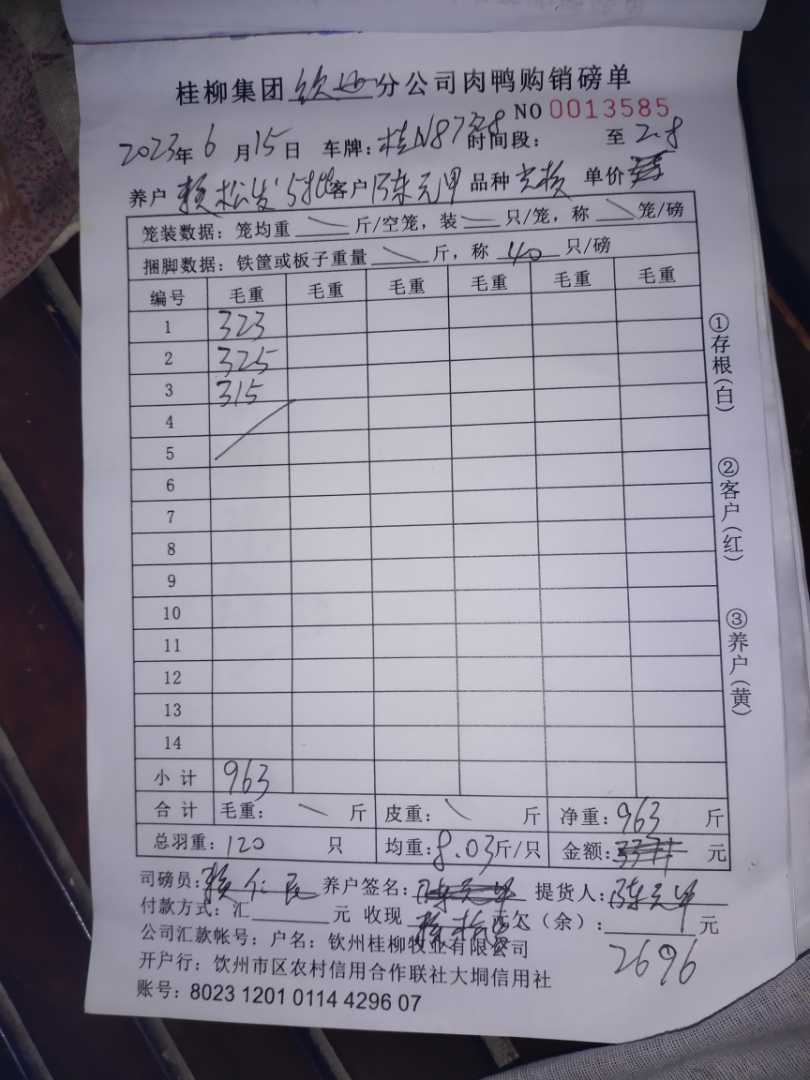 桂柳集团钦州分公司肉鸭购销磅单
NO 0013585
2023年6月15日 车牌:桂N87328时间段: 至 2.8
养户 赖松发 5批客户 陈元甲 品种 单价
笼装数据:笼均重 斤/空笼,装 只/笼,称 笼/磅
捆脚数据:铁筐或板子重量 斤,称 40 只/磅
编号 毛重 毛重 毛重 毛重 毛重 毛重
1 323
2 325
3 315
4
5
6
7
8
9
10
11
12
13
14
小计 963
合计 毛重: 斤 皮重: 斤 净重:963 斤
总羽重:120 只 均重:8.03斤/只 金额: 元
司磅员:赖仁 养户签名: 提货人:陈元甲
付款方式:汇 元 收现 赖松发 元欠(余): 元
2696
公司汇款帐号:户名:钦州桂柳牧业有限公司
开户行:饮州市区农村信用合作联社大垌信用社
账号:8023 1201 0114 4296 07
①存根(白)
②客户(红)
③养户(黄)